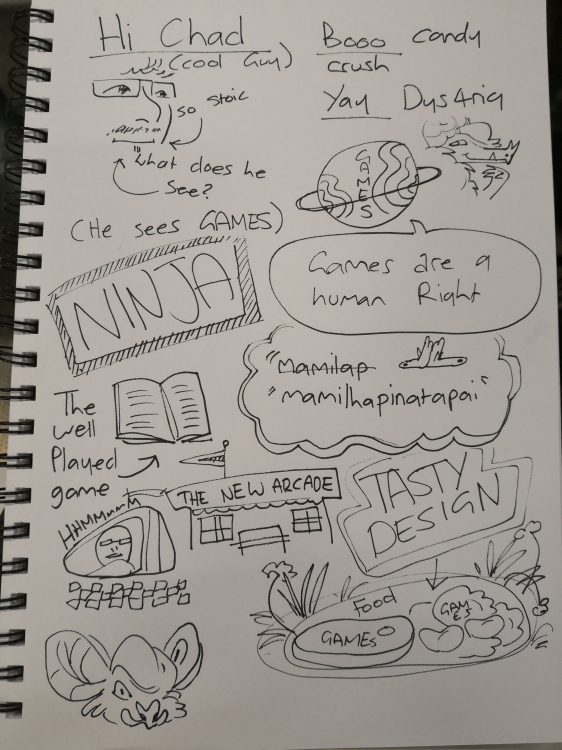 Hi Chad
(cool Guy)
so stoic
What does he
see?
(He sees GAMES)
Booo candy
crush
Yay Dys4ria
GAMES
Games are a
human Right
NINJA
"Mamilap
"mamilhapinatapai"
The
well
Played
game
THE NEW ARCADE
HHMMmmM
TASTY
DESIGN
FOOD
GAMES
GAM
ES